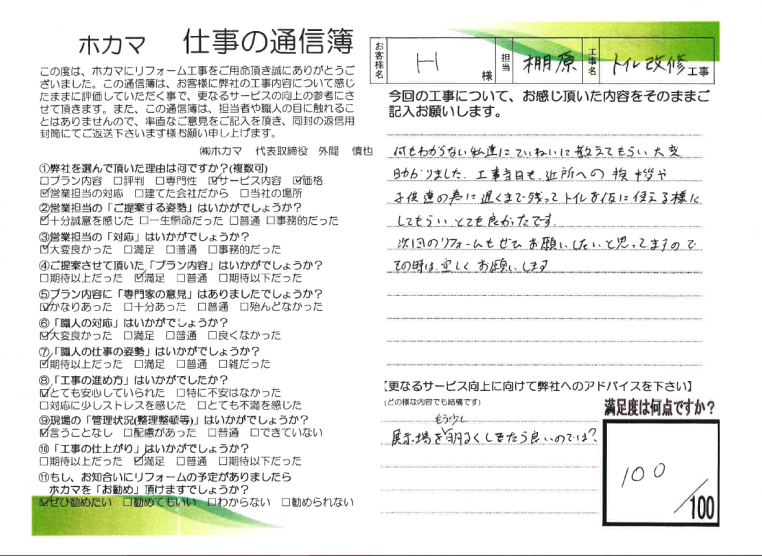 ホカマ 仕事の通信簿
この度は、ホカマにリフォーム工事をご用命頂き誠にありがとうご
ざいました。この通信簿は、お客様に弊社の工事内容について感じ
たままに評価していただく事で、更なるサービスの向上の参考にさ
せて頂きます。また、この通信簿は、担当者や職人の目に触れるこ
とはありませんので、率直なご意見をご記入を頂き、同封の返信用
封筒にてご返送下さいます様お願い申し上げます。
㈱ホカマ 代表取締役 外間 慎也
①弊社を選んで頂いた理由は何ですか?(複数可)
□プラン内容 □評判 □専門性 ☑サービス内容 ☑価格
☑営業担当の対応 □建てた会社だから □当社の場所
②営業担当の「ご提案する姿勢」はいかがでしょうか?
☑十分誠意を感じた □一生懸命だった □普通 □事務的だった
③営業担当の「対応」はいかがでしょうか?
☑大変良かった □満足 □普通 □事務的だった
④ご提案させて頂いた「プラン内容」はいかがでしょうか?
□期待以上だった ☑満足 □普通 □期待以下だった
⑤プラン内容に「専門家の意見」はありましたでしょうか?
☑かなりあった □十分あった □普通 □殆んどなかった
⑥「職人の対応」はいかがでしょうか?
☑大変良かった □満足 □普通 □良くなかった
⑦「職人の仕事の姿勢」はいかがでしょうか?
☑期待以上だった □満足 □普通 □雑だった
⑧「工事の進め方」はいかがでしたか?
☑とても安心していられた □特に不安はなかった
□対応に少しストレスを感じた □とても不満を感じた
⑨現場の「管理状況(整理整頓等)」はいかがでしょうか?
☑言うことなし □配慮があった □普通 □できていない
⑩「工事の仕上がり」はいかがでしょうか?
□期待以上だった ☑満足 □普通 □期待以下だった
⑪もし、お知合いにリフォームの予定がありましたら
ホカマを「お勧め」頂けますでしょうか?
☑ぜひ勧めたい □勧めてもいい □わからない □勧められない
お客様名 H 様 担当 棚原 工事名 トイレ改修工事
今回の工事について、お感じ頂いた内容をそのままご
記入お願いします。
何もわからない私達にていねいに教えてもらい大変
助かりました。工事当日も、近所への挨拶や
子供達の為に遅くまで残ってトイレを仮に使える様に
してもらい とても良かったです。
次回のリフォームもぜひお願いしたいと思ってますので
その時は、宜しくお願いします
【更なるサービス向上に向けて弊社へのアドバイスを下さい】
(どの様な内容でも結構です)
もう少し
展示場を明るくしたら良いのでは?
満足度は何点ですか?
100
/100